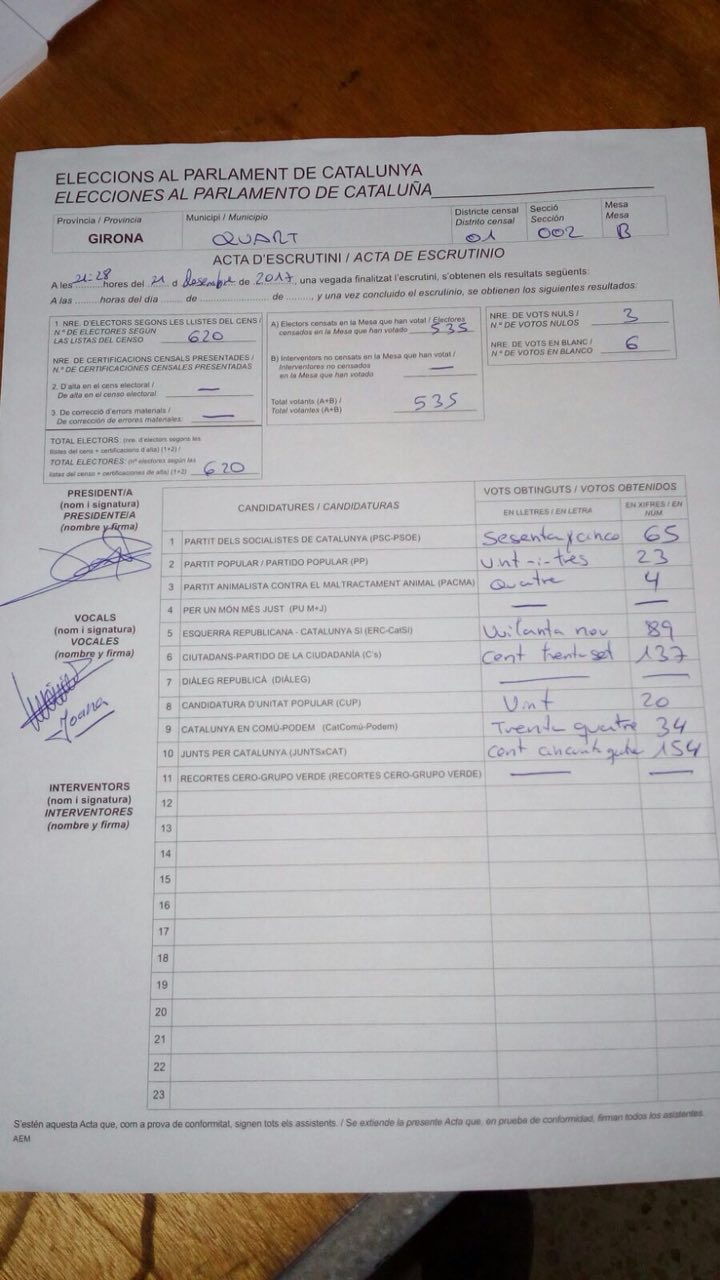 ELECCIONS AL PARLAMENT DE CATALUNYA
ELECCIONES AL PARLAMENTO DE CATALUÑA
Província / Provincia
GIRONA
Municipi / Municipio
QUART
Districte censal
Distrito censal
01
Secció
Sección
002
Mesa
Mesa
B
ACTA D'ESCRUTINI / ACTA DE ESCRUTINIO
A les 21:28 hores del 21 d Desembre de 2017, una vegada finalitzat l'escrutini, s'obtenen els resultats següents:
A las ......... horas del día ....... de ............................ de ........, y una vez concluido el escrutinio, se obtienen los siguientes resultados:
1. NRE. D'ELECTORS SEGONS LES LLISTES DEL CENS /
N.º DE ELECTORES SEGÚN
LAS LISTAS DEL CENSO 620
NRE. DE CERTIFICACIONS CENSALS PRESENTADES /
N.º DE CERTIFICACIONES CENSALES PRESENTADAS
2. D'alta en el cens electoral /
De alta en el censo electoral —
3. De correcció d'errors materials /
De corrección de errores materiales: —
TOTAL ELECTORS: (nre. d'electors segons les
llistes del cens + certificacions d'alta) (1+2) /
TOTAL ELECTORES: (nº electores según las
listas del censo + certificaciones de alta) (1+2) 620
A) Electors censats en la Mesa que han votat / Electores
censados en la Mesa que han votado 535
B) Interventors no censats en la Mesa que han votat /
Interventores no censados
en la Mesa que han votado —
Total votants (A+B) /
Total votantes (A+B) 535
NRE. DE VOTS NULS /
N.º DE VOTOS NULOS 3
NRE. DE VOTS EN BLANC /
N.º DE VOTOS EN BLANCO 6
PRESIDENT/A
(nom i signatura)
PRESIDENTE/A
(nombre y firma)
VOCALS
(nom i signatura)
VOCALES
(nombre y firma)
Joana
INTERVENTORS
(nom i signatura)
INTERVENTORES
(nombre y firma)
CANDIDATURES / CANDIDATURAS
VOTS OBTINGUTS / VOTOS OBTENIDOS
EN LLETRES / EN LETRA
EN XIFRES / EN NUM
1 PARTIT DELS SOCIALISTES DE CATALUNYA (PSC-PSOE) Sesenta y cinco 65
2 PARTIT POPULAR / PARTIDO POPULAR (PP) Vint-i-tres 23
3 PARTIT ANIMALISTA CONTRA EL MALTRACTAMENT ANIMAL (PACMA) Quatre 4
4 PER UN MÓN MÉS JUST (PU M+J) — —
5 ESQUERRA REPUBLICANA - CATALUNYA SÍ (ERC-CatSí) Vuitanta nou 89
6 CIUTADANS-PARTIDO DE LA CIUDADANÍA (C's) Cent trenta set 137
7 DIÀLEG REPUBLICÀ (DIÀLEG) — —
8 CANDIDATURA D'UNITAT POPULAR (CUP) Vint 20
9 CATALUNYA EN COMÚ-PODEM (CatComú-Podem) Trenta quatre 34
10 JUNTS PER CATALUNYA (JUNTSxCAT) Cent cincuanta quatre 154
11 RECORTES CERO-GRUPO VERDE (RECORTES CERO-GRUPO VERDE) — —
12
13
14
15
16
17
18
19
20
21
22
23
S'estén aquesta Acta que, com a prova de conformitat, signen tots els assistents. / Se extiende la presente Acta que, en prueba de conformidad, firman todos los asistentes.
AEM